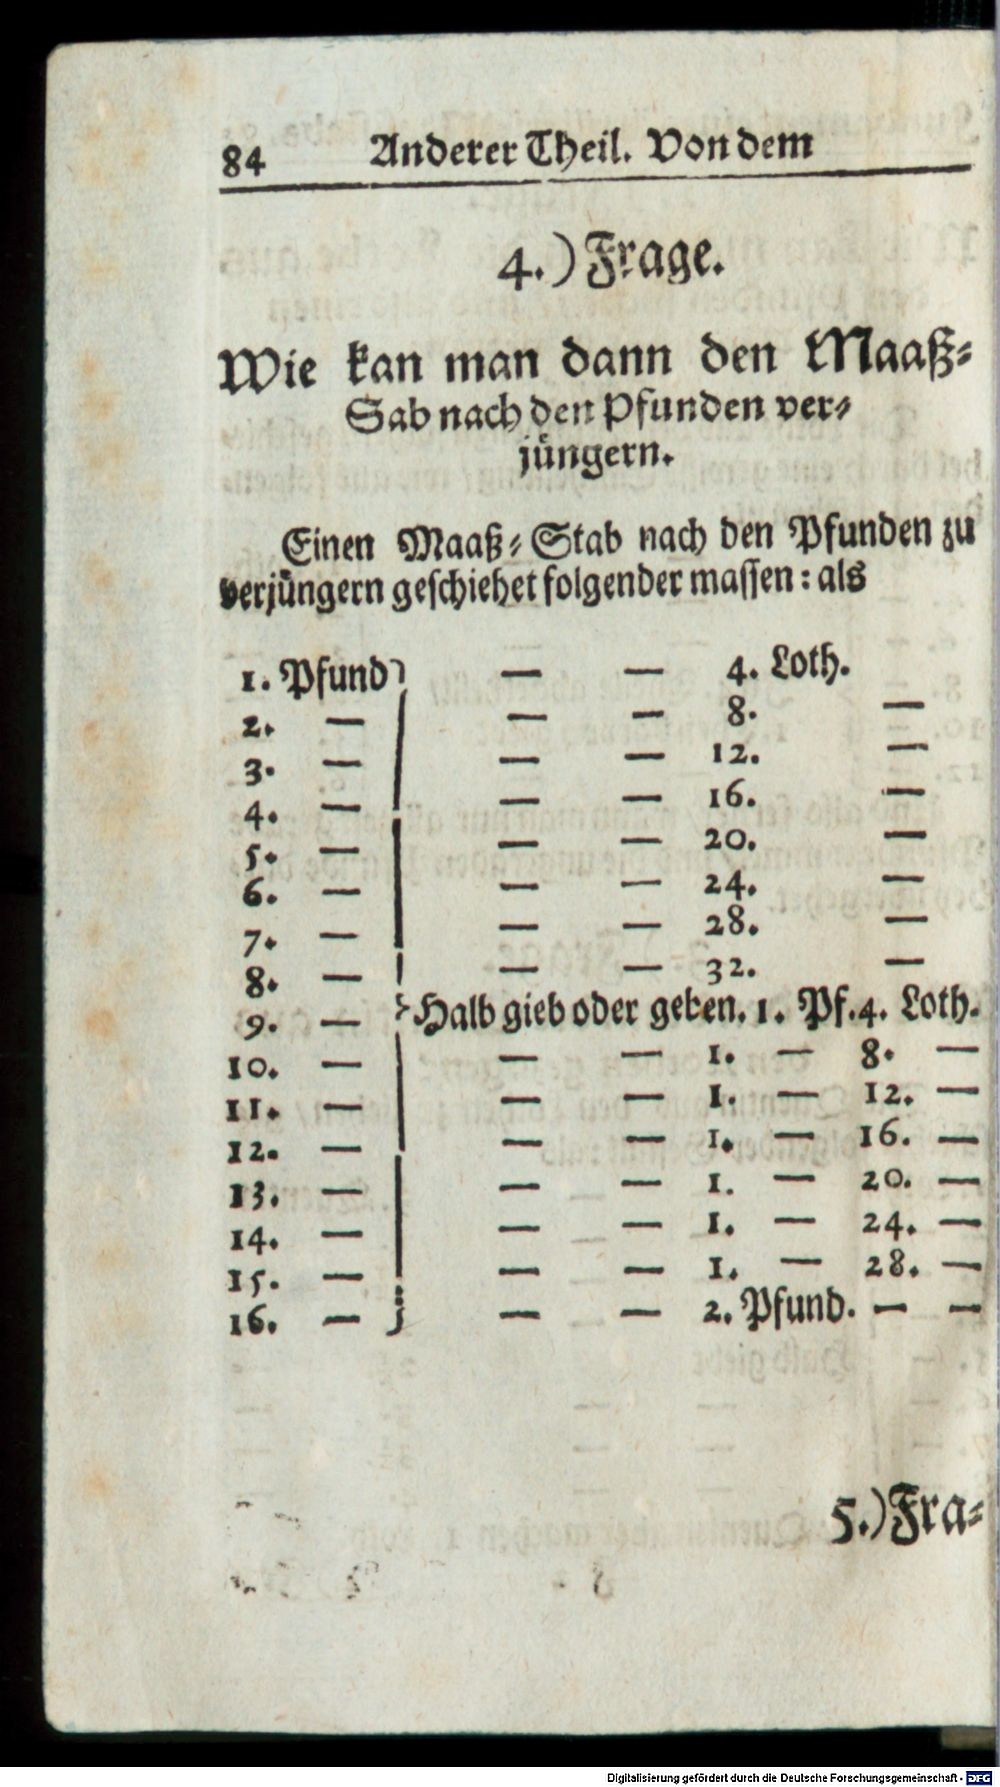 84 Anderer Theil. Von dem
4.) Frage.
Wie kan man dann den Maaß-
Sab nach den Pfunden ver-
jüngern.
Einen Maaß-Stab nach den Pfunden zu
verjüngern geschiehet folgender massen: als
1. Pfund — — 4. Loth.
2. — — — 8. —
3. — — — 12. —
4. — — — 16. —
5. — — — 20. —
6. — — — 24. —
7. — — — 28. —
8. — — — 32. —
9. — Halb gieb oder geben. 1. Pf. 4. Loth.
10. — — — 1. — 8. —
11. — — — 1. — 12. —
12. — — — 1. — 16. —
13. — — — 1. — 20. —
14. — — — 1. — 24. —
15. — — — 1. — 28. —
16. — — — 2. Pfund. — —
5.) Fra-
Digitalisierung gefördert durch die Deutsche Forschungsgemeinschaft - DFG